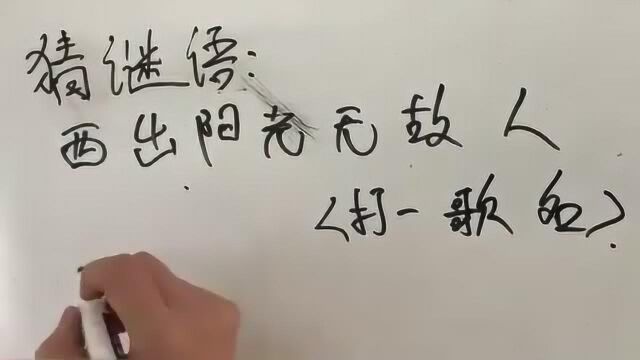 猜谜语:
西出阳关无故人
(打一歌名)